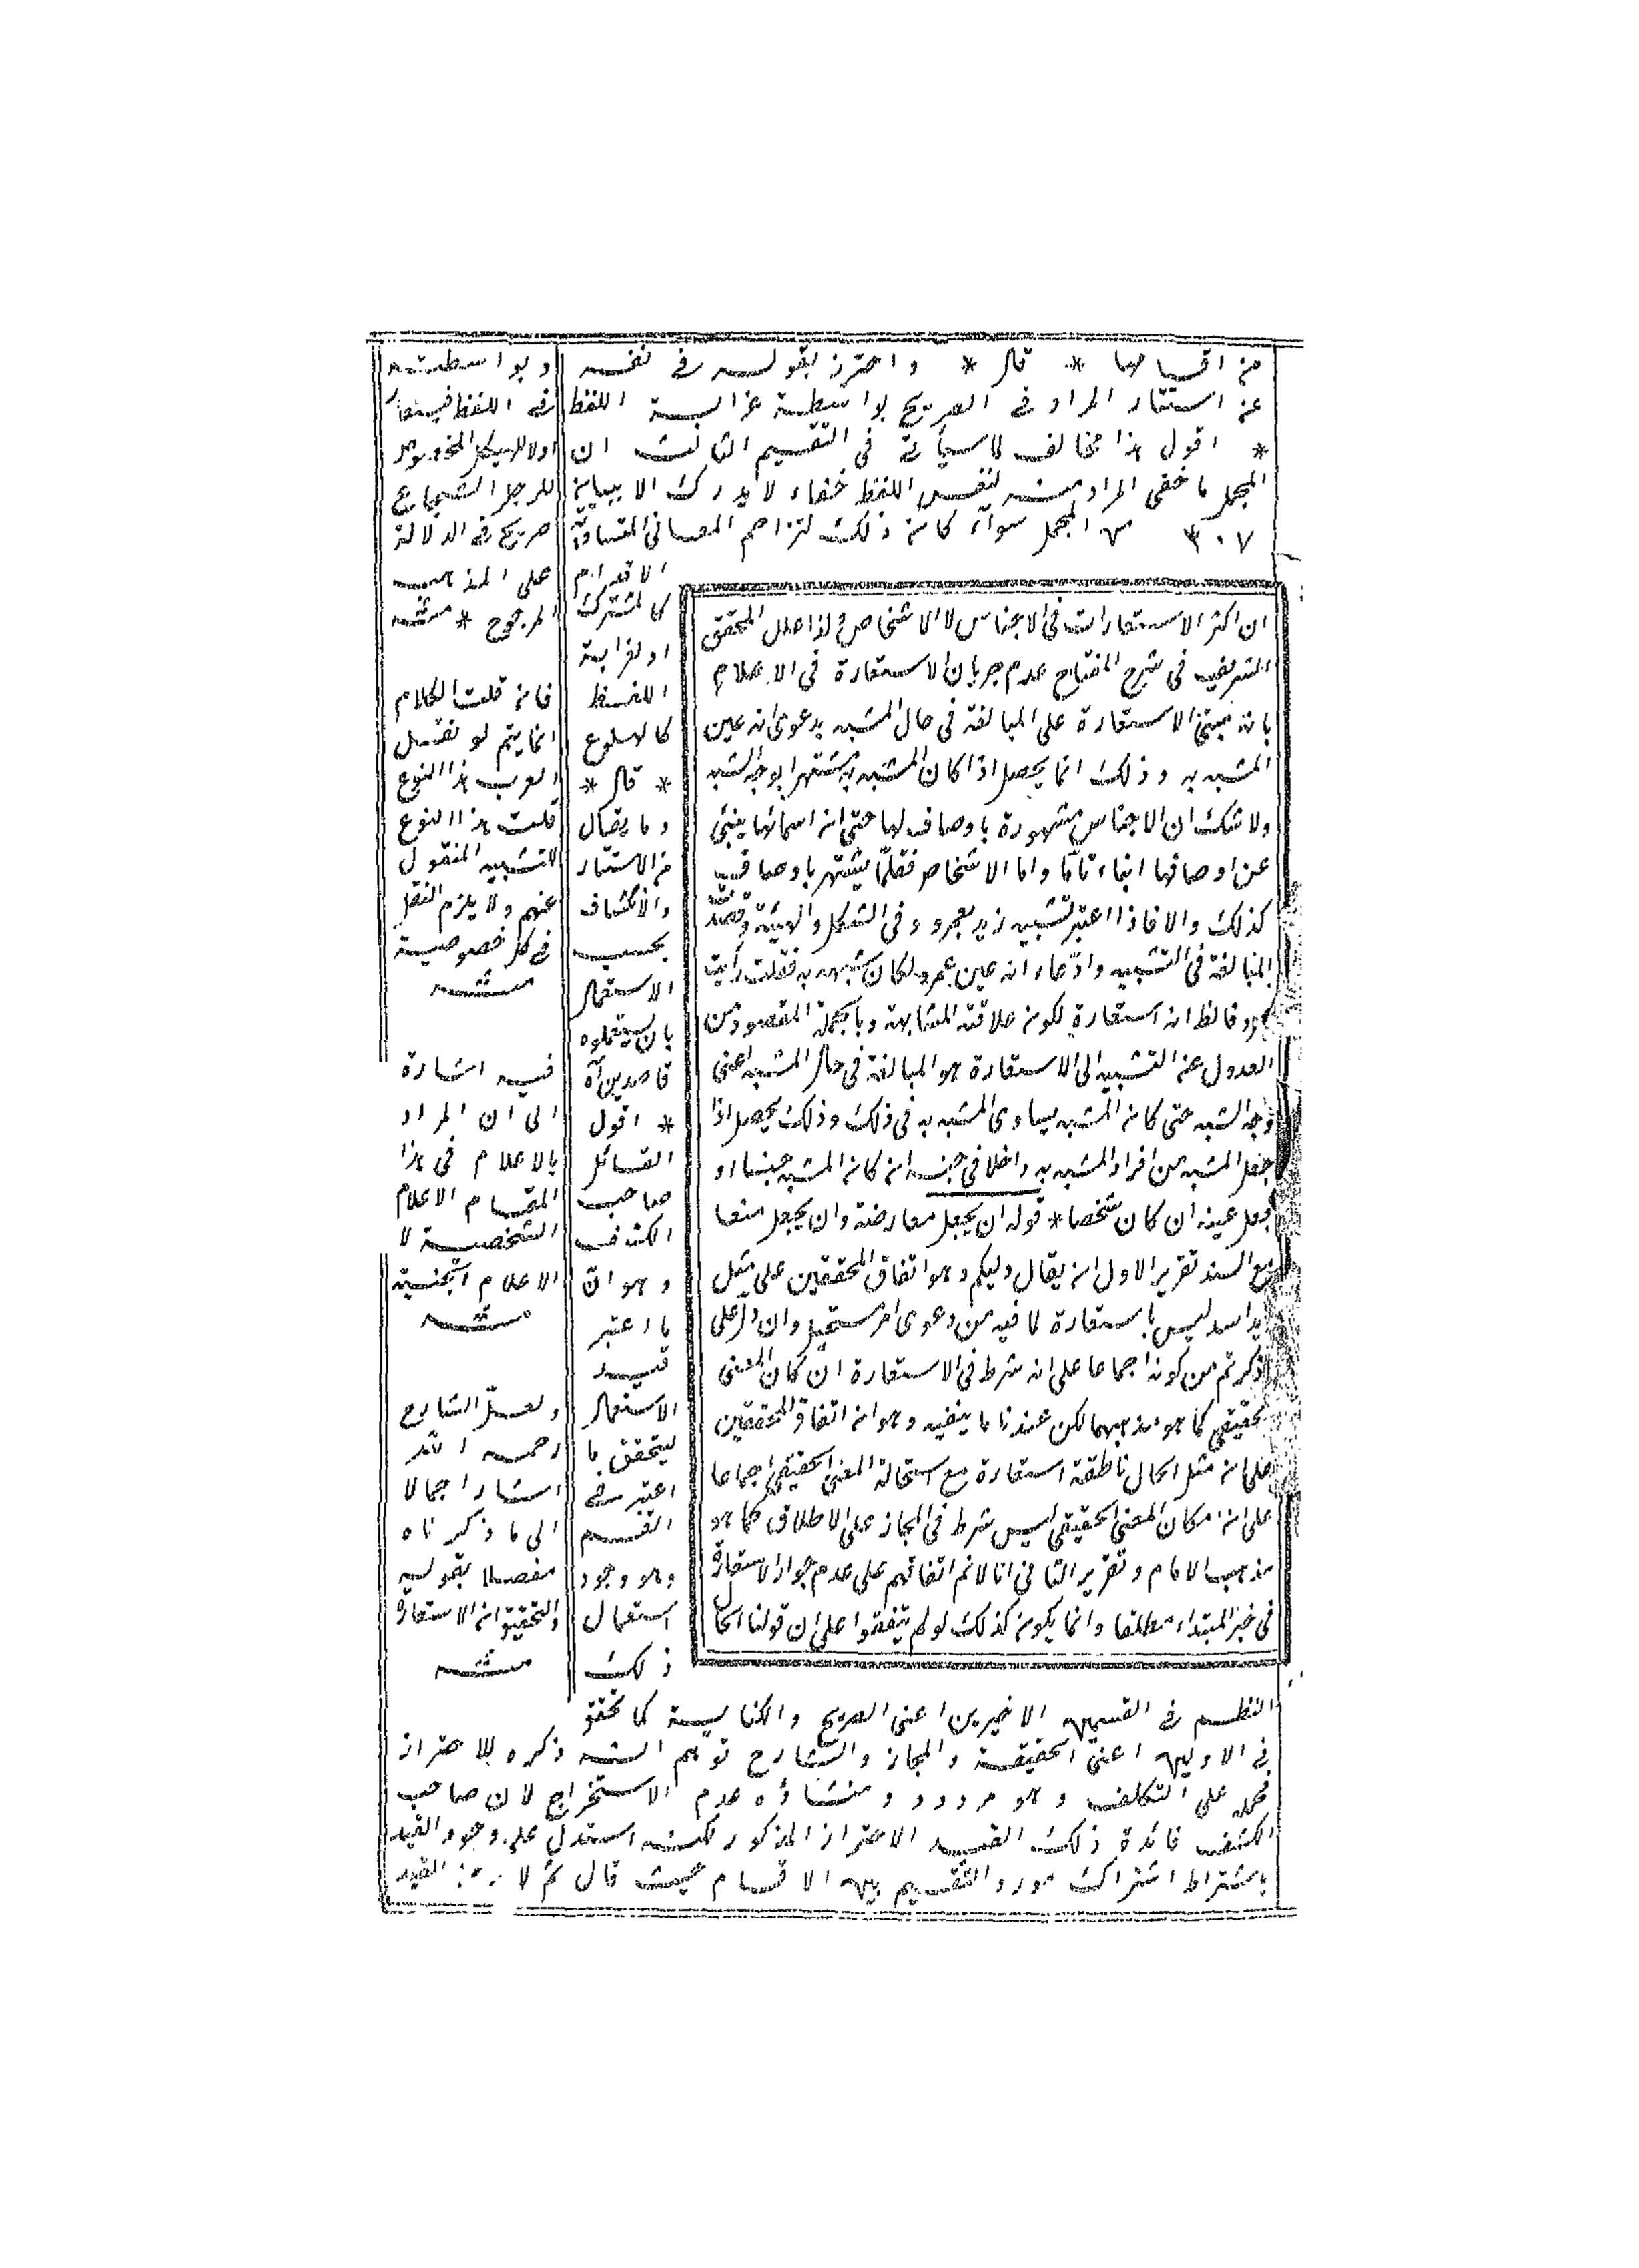 من اقسامها * قال * واحترز بقوله في نفسه
عن استتار المراد في الصريح بواسطة غرابة اللفظ
* اقول هذا مخالف لما سيأتي في التقسيم الثالث ان
المجمل ما خفى المراد منه لنفس اللفظ خفاء لا يدرك الا ببيان
٣٠٧ من المجمل سواء كان ذلك لتزاحم المعاني المتساوية
الاقدام
كالمشترك
او لغرابة
اللفظ
كالهلوع
* قال *
وما يقال
من الاستتار
والانكشاف
بحسب
الاستعمال
بان يستعملوه
قاصدين آه
* اقول
القائل
صاحب
الكشف
وهو ان
ما اعتبر
قيد
الاستعمال
ليتحقق ما
اعتبر في
القسم
وهو وجود
استعمال
ذلك
النظم في القسمين الاخيرين اعني الصريح والكناية كما تحقق
في الاوليين اعني الحقيقة والمجاز والشارح توهم انه ذكره للاحتراز
فحمله على التكلف وهو مردود ومنشاؤه عدم الاستخراج لان صاحب
الكشف فائدة ذلك القيد الاحتراز المذكور لكنه استدل على وجود القيد
باشتراط اشتراك مورد التقسيم بين الاقسام حيث قال ثم لا القيد
ان اكثر الاستعارات في الاجناس لا الاشخاص ولذا علل المحقق
الشريف في شرح المفتاح عدم جريان الاستعارة في الاعلام
بانه مبنى الاستعارة على المبالغة في حال المشبه بدعوى انه عين
المشبه به وذلك انما يحصل اذا كان المشبه به مشتهرا بوجه الشبه
ولا شك ان الاجناس مشهورة باوصاف لها حتى ان اسمائها ينبئ
عن اوصافها انباء تاما واما الاشخاص فقلما يشتهر باوصاف
كذلك والا فاذا اعتبر تشبيه زيد بعمرو في الشكل والهيئة وقصد
المبالغة في التشبيه وادعاء انه عين عمرو لكان شبهه به فقلت رأيت
عمرو فالظ انه استعارة لكون علاقته المشابهة وبالجملة المقصود من
العدول عن التشبيه الى الاستعارة هو المبالغة في حال المشبه اعنى
وجه الشبه حتى كان المشبه يساوى المشبه به في ذلك وذلك يحصل اذا
جعل المشبه من افراد المشبه به داخلا في جنسه ان كان المشبه جنسا او
جعل عينه ان كان شخصا * قوله ان يجعل معارضة وان يجعل منعا
مع السند تقرير الاول ان يقال دليلكم وهو اتفاق المحققين على مثل
زيد اسد ليس باستعارة لما فيه من دعوى امر مستحيل وان دل على
ما ذكرتم من كونه اجماعا على انه شرط في الاستعارة ان كان المعنى
الحقيقي كما هو مذهبهما لكن عندنا ما ينفيه وهو ان اتفاق المحققين
على ان مثل الحال ناطقة استعارة مع استحالة المعنى الحقيقي اجماعا
على ان امكان المعنى الحقيقي ليس شرط في المجاز على الاطلاق كما هو
مذهب الامام وتقرير الثاني انا لا نم اتفاقهم على عدم جواز الاستعارة
في خبر المبتداء مطلقا وانما يكون كذلك لو لم يتفقوا على ان قولنا الحال
وبواسطته
في اللفظ
اولا للهيكل المخصوص
للرجل الشجاع
صريح في الدلالة
على المذهب
المرجوح * منه
فان قلت الكلام
انما يتم لو نقل
العرب هذا النوع
قلت هذا النوع
للتشبيه المنقول
عنهم ولا يلزم النقل
في كل خصوصية
منه
فيه اشارة
الى ان المراد
بالاعلام في هذا
المقام الاعلام
الشخصية لا
الاعلام الجنسية
منه
ولعل الشارح
رحمه الله
اشار اجمالا
الى ما ذكرناه
مفصلا بقوله
والتحقيق ان الاستعارة
منه